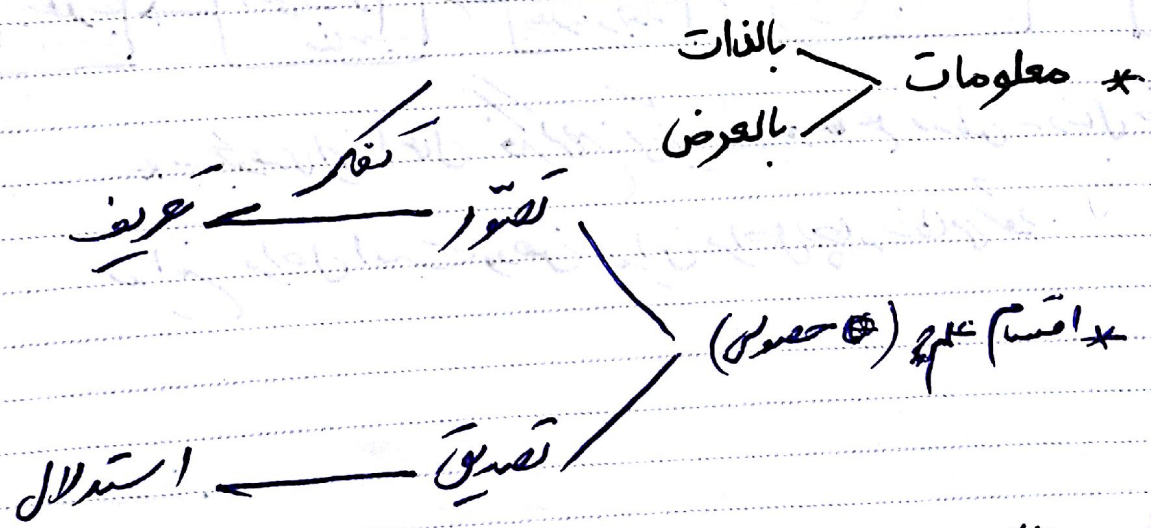 * معلومات
بالذات
بالعرض
* اقسام علم (حصولی)
تصوّر
تفکر
تعریف
تصدیق
استدلال